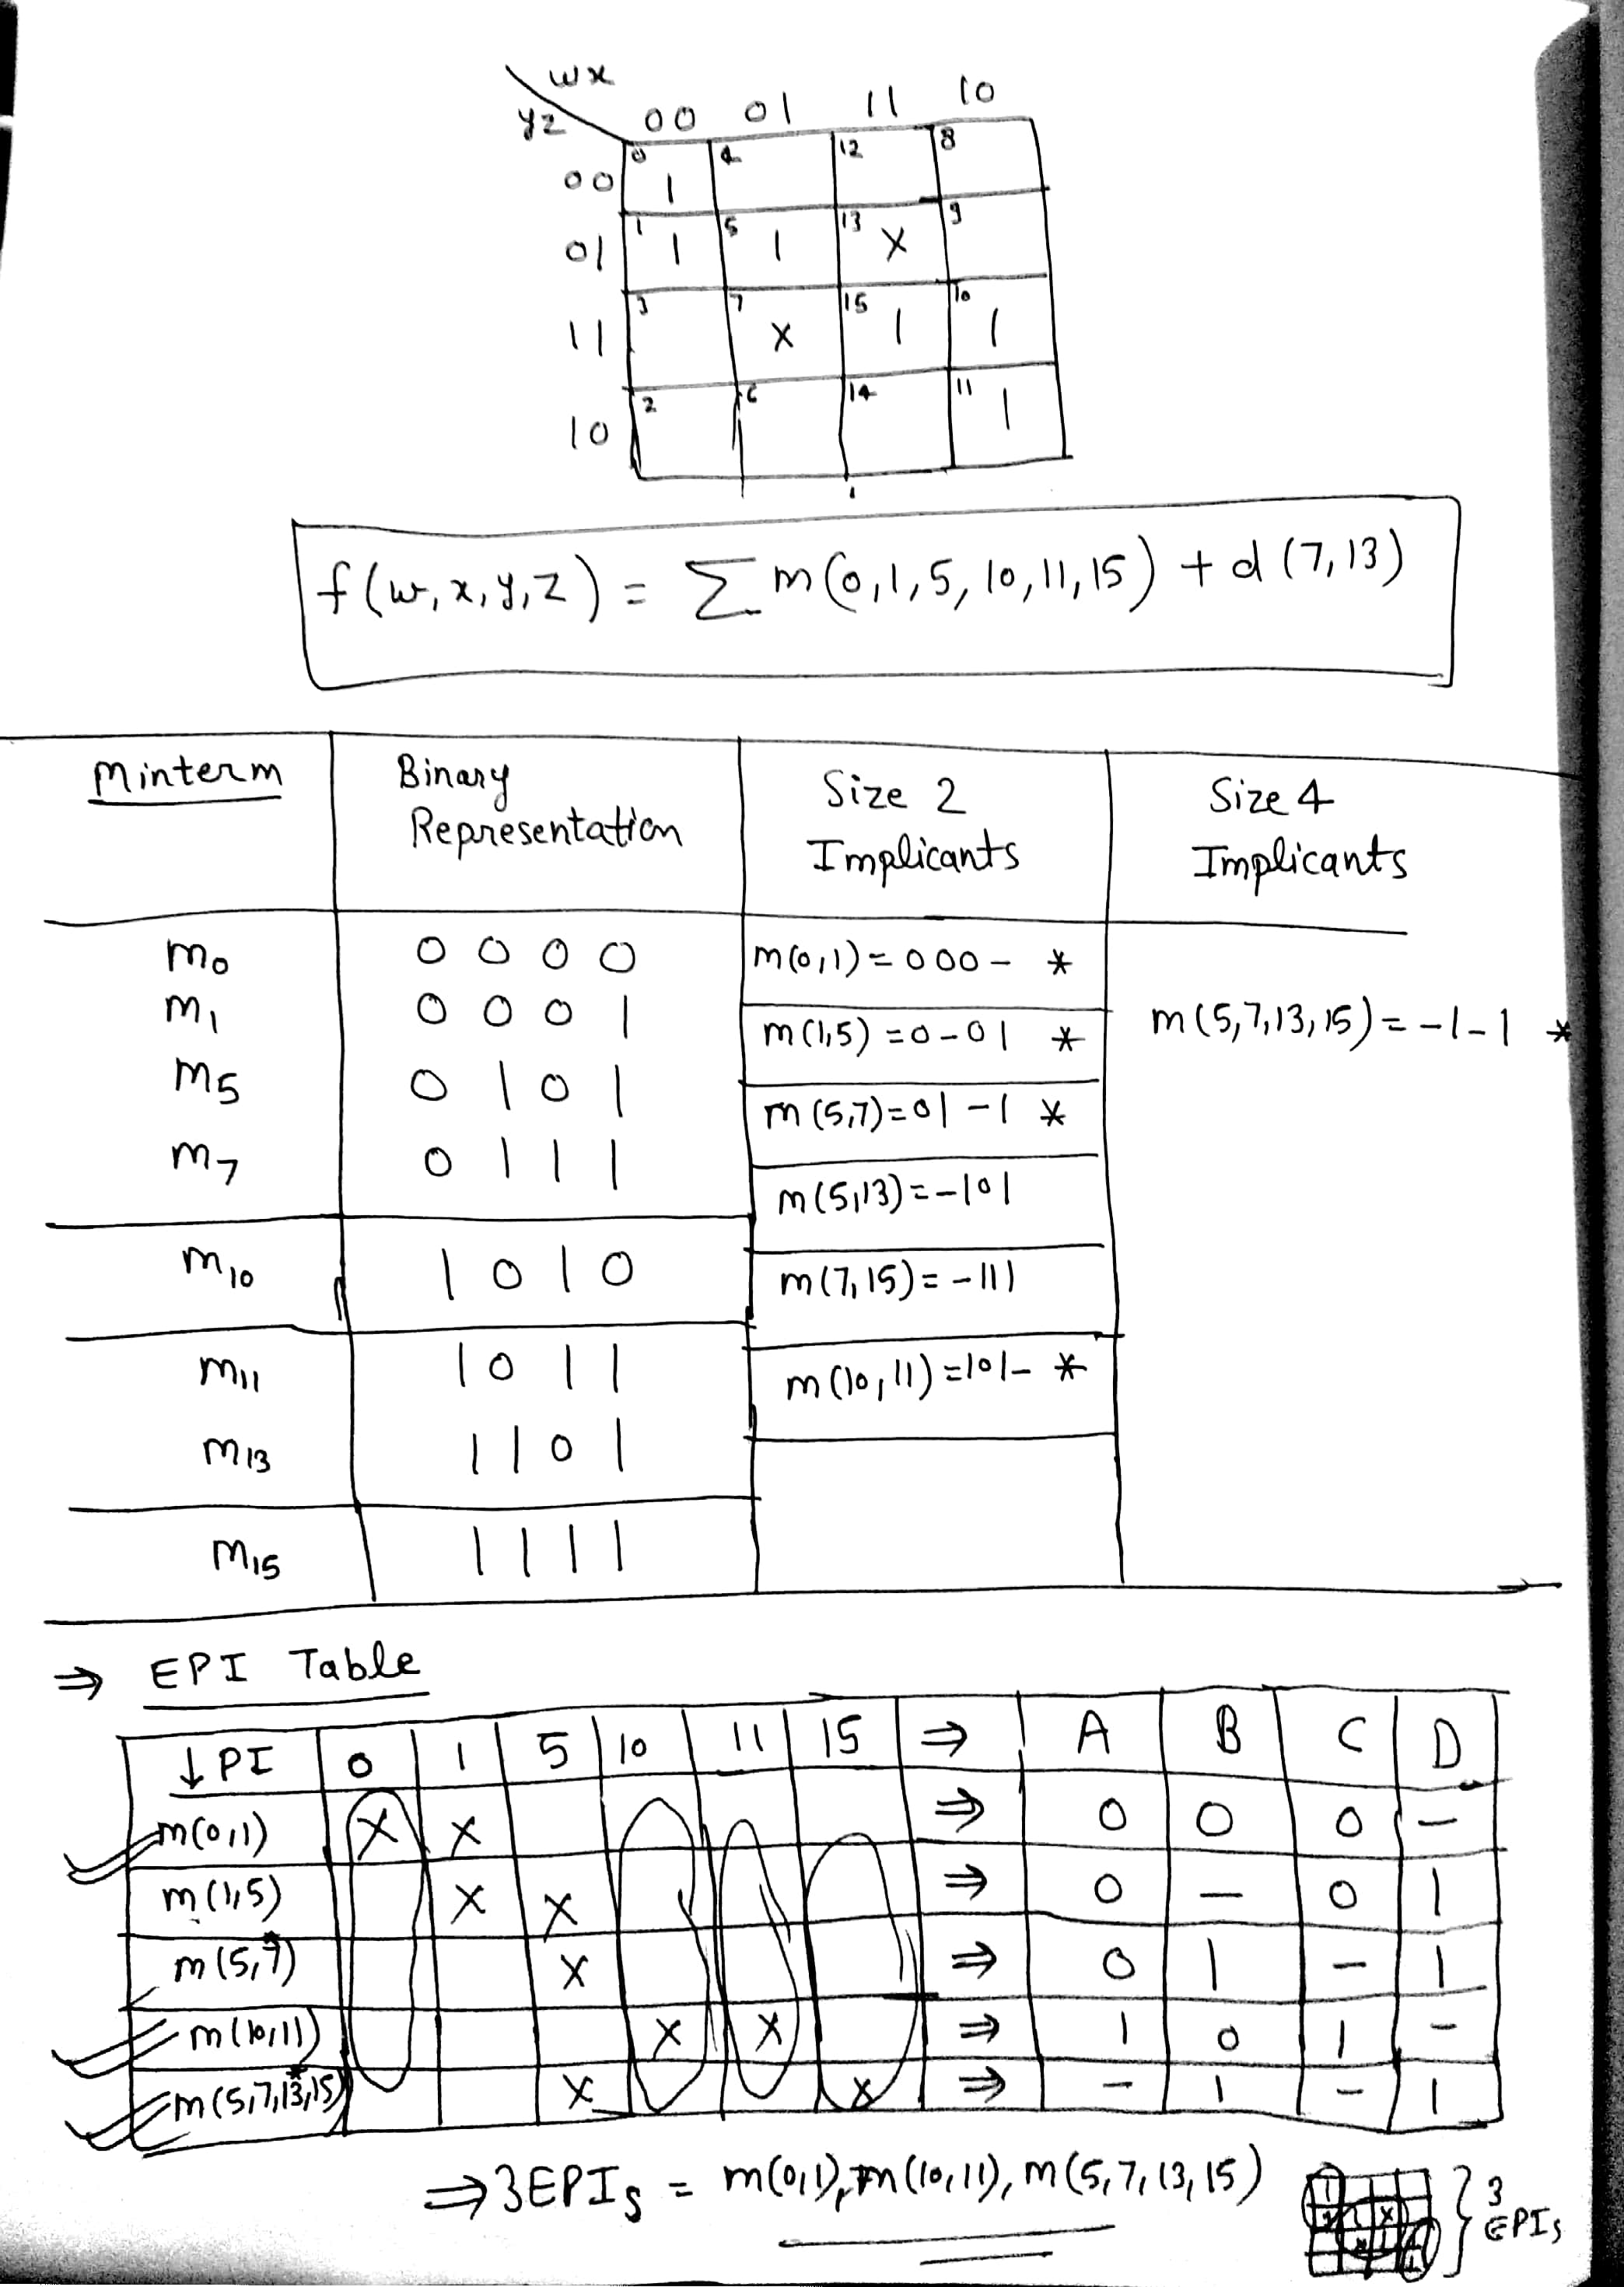 wx
yz 00 01 11 10
00 0 1 4 12 8
01 1 1 5 1 13 X 9
11 3 7 X 15 1 10 1
10 2 6 14 11 1
f(w,x,y,z) = Σ m(0,1,5,10,11,15) + d(7,13)
Minterm Binary Representation Size 2 Implicants Size 4 Implicants
m0 0 0 0 0 m(0,1)=000- *
m1 0 0 0 1 m(1,5)=0-01 * m(5,7,13,15)=-1-1 *
m5 0 1 0 1 m(5,7)=01-1 *
m7 0 1 1 1 m(5,13)=-101
m10 1 0 1 0 m(7,15)=-111
m11 1 0 1 1 m(10,11)=101- *
m13 1 1 0 1
m15 1 1 1 1
⇒ EPI Table
↓PI 0 1 5 10 11 15 ⇒ A B C D
m(0,1) X X ⇒ 0 0 0 -
m(1,5) X X ⇒ 0 - 0 1
m(5,7*) X ⇒ 0 1 - 1
m(10,11) X X ⇒ 1 0 1 -
m(5,7,13*,15) X X ⇒ - 1 - 1
⇒3EPIs = m(0,1), m(10,11), m(5,7,13,15)
} 3 EPIs